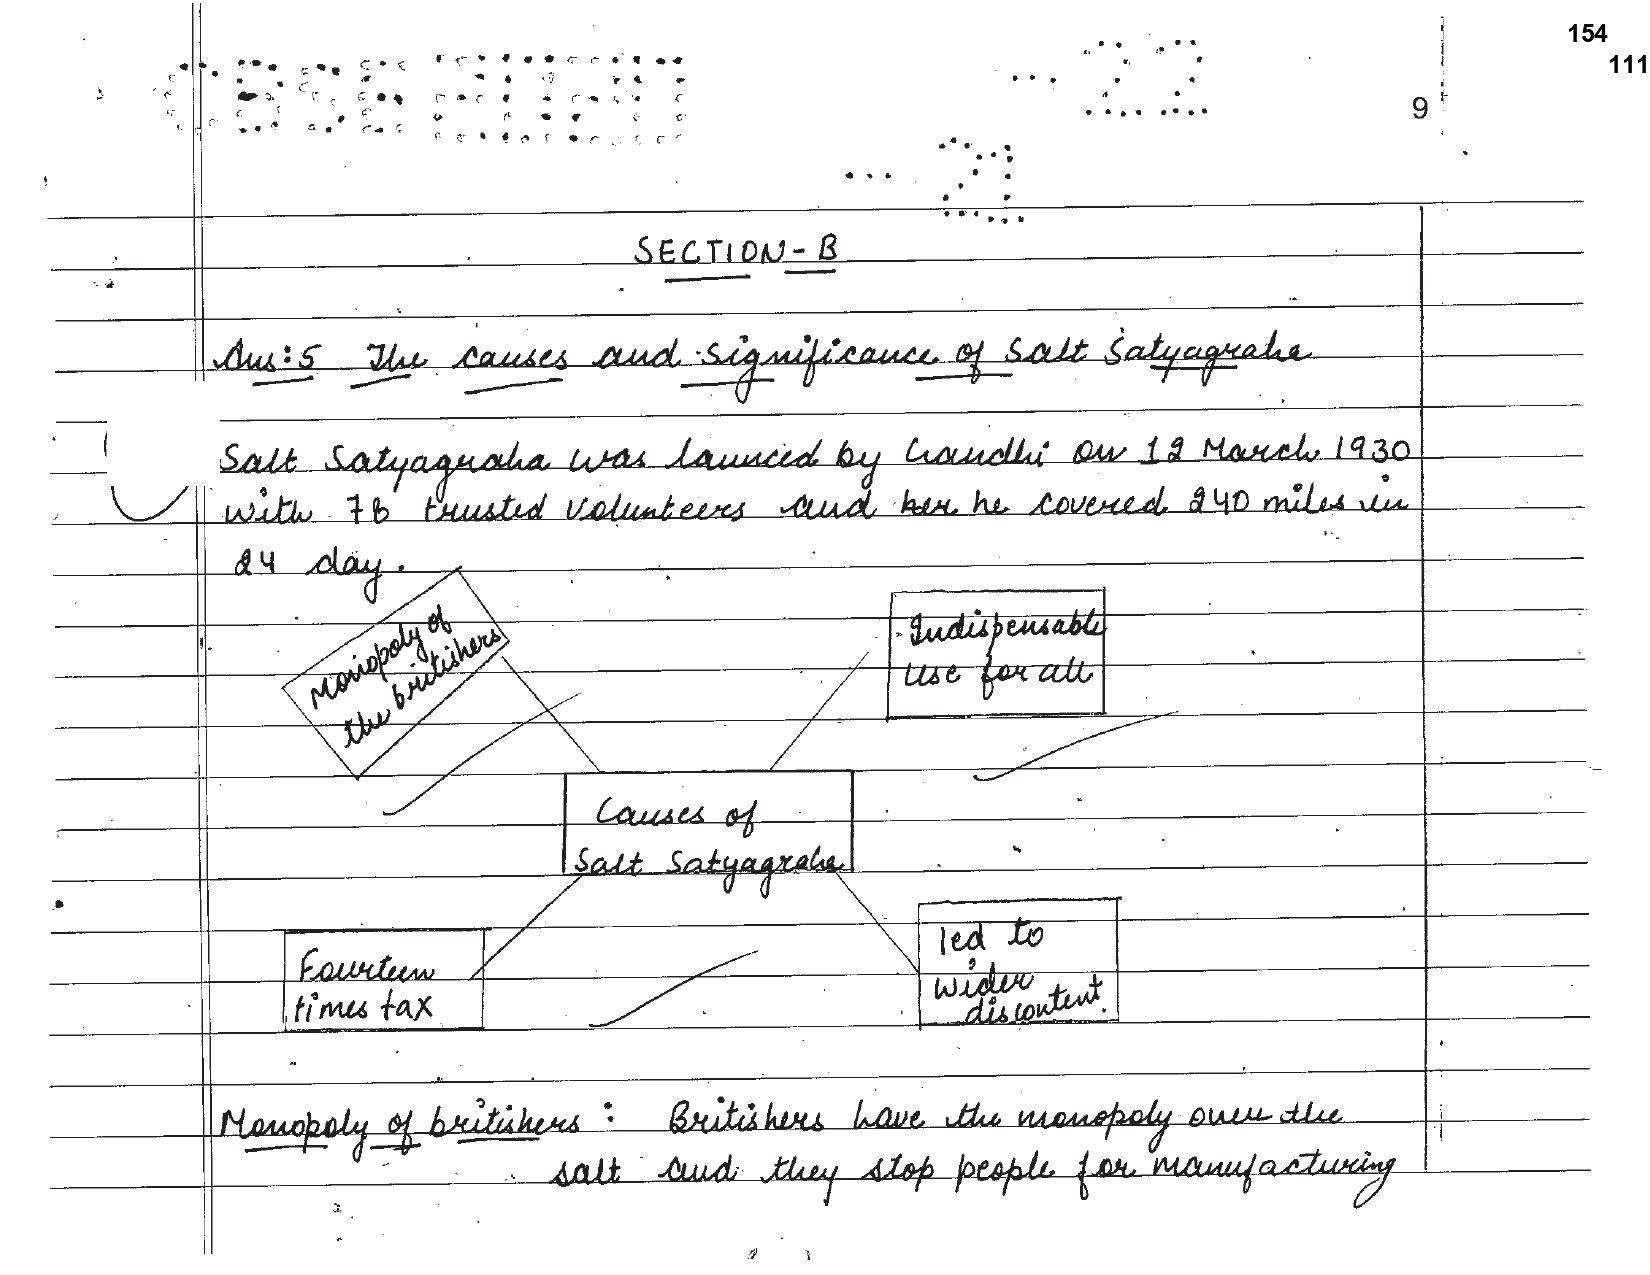 154
111
CBSE
22
9
21
SECTION-B
Ans:5 The causes and significance of Salt Satyagraha
Salt Satyagraha was launced by Gandhi on 12 March 1930
with 78 trusted volunteers and her he covered 240 miles in
24 day.
Monopoly of
the britishers
Indispensable
use for all
Causes of
Salt Satyagraha
Fourteen
times tax
led to
wider
discontent.
Monopoly of britishers : Britishers have the monopoly over the
salt and they stop people for manufacturing